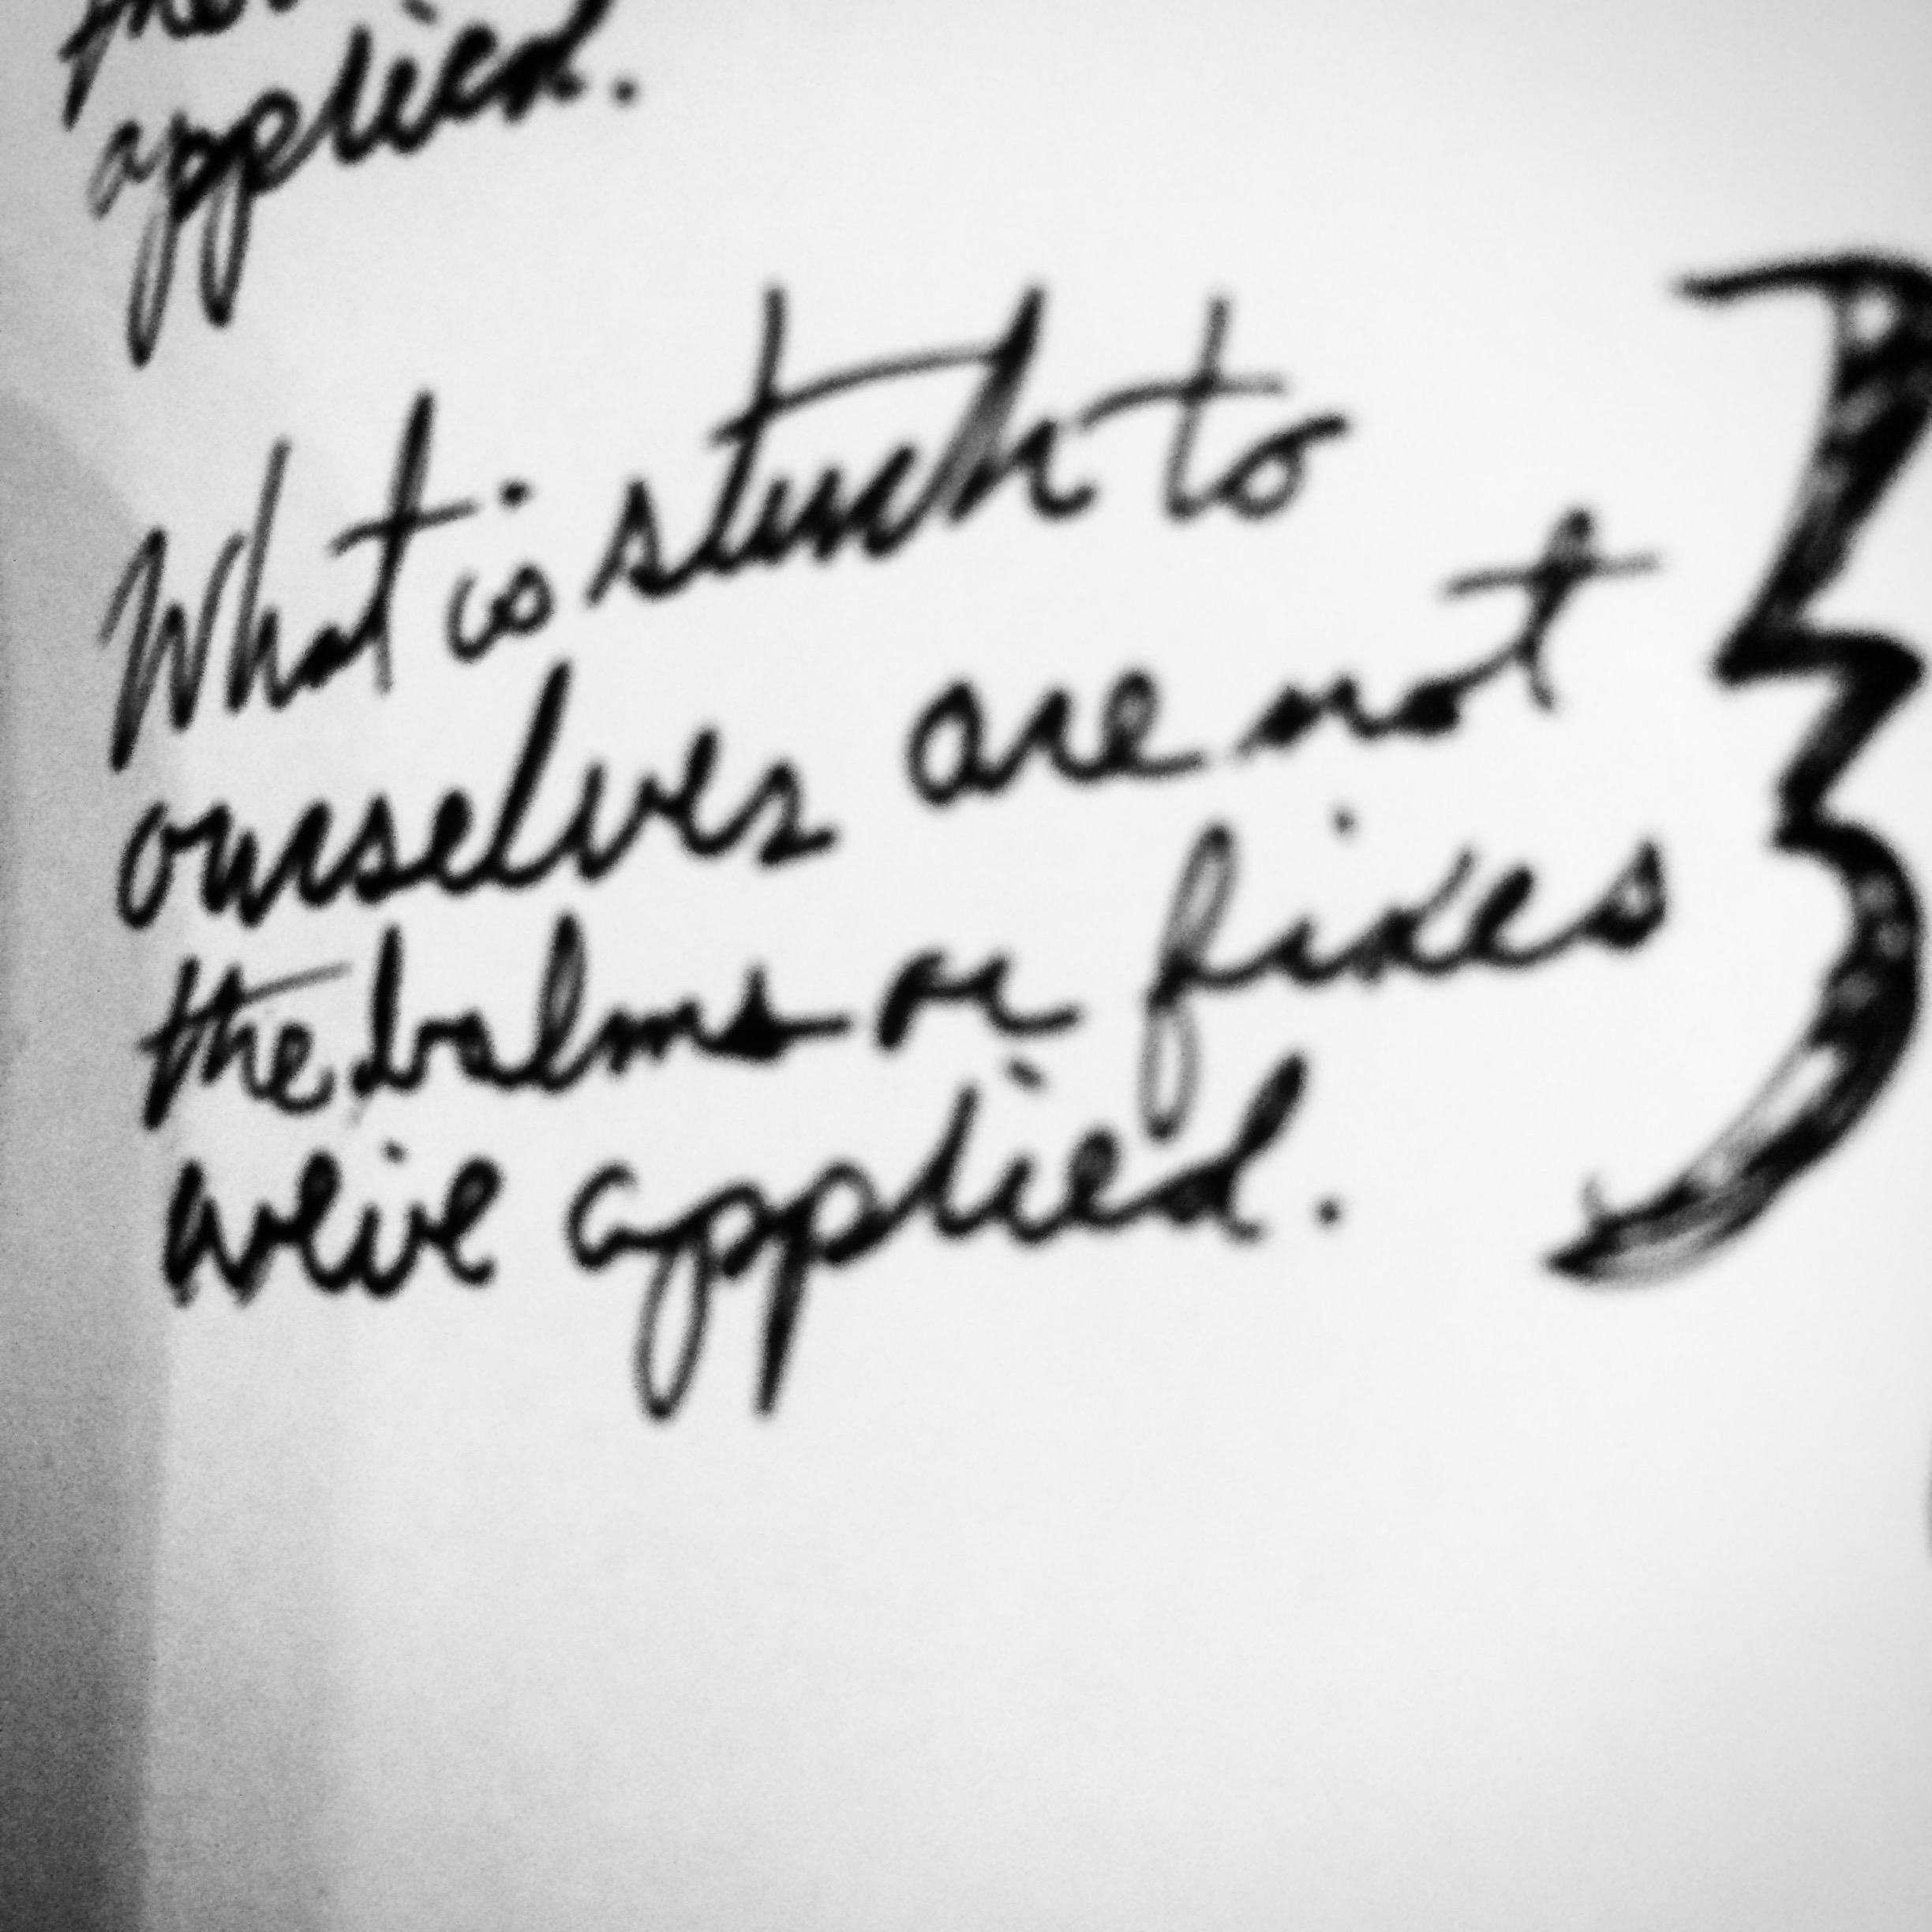 applied.
What is stuck to
ourselves are not
the balms or fixes
we've applied.